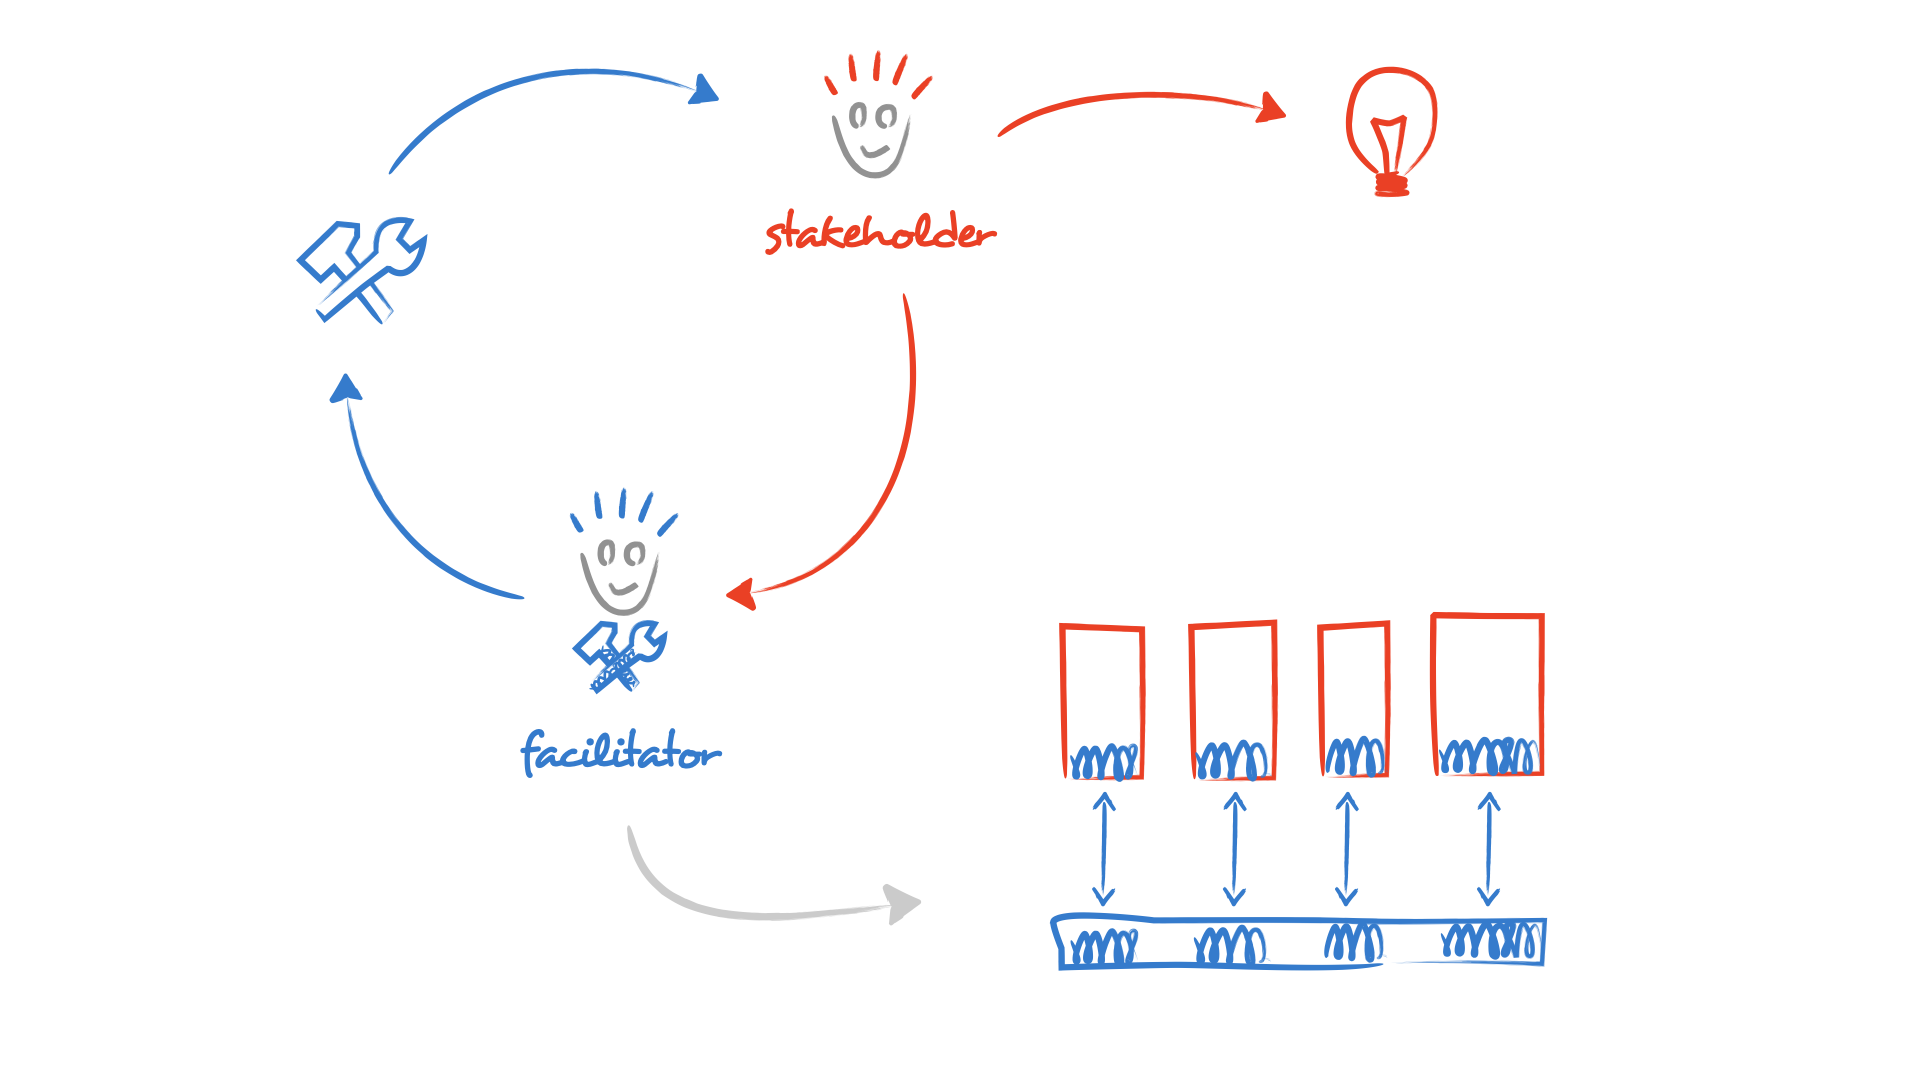 stakeholder
facilitator